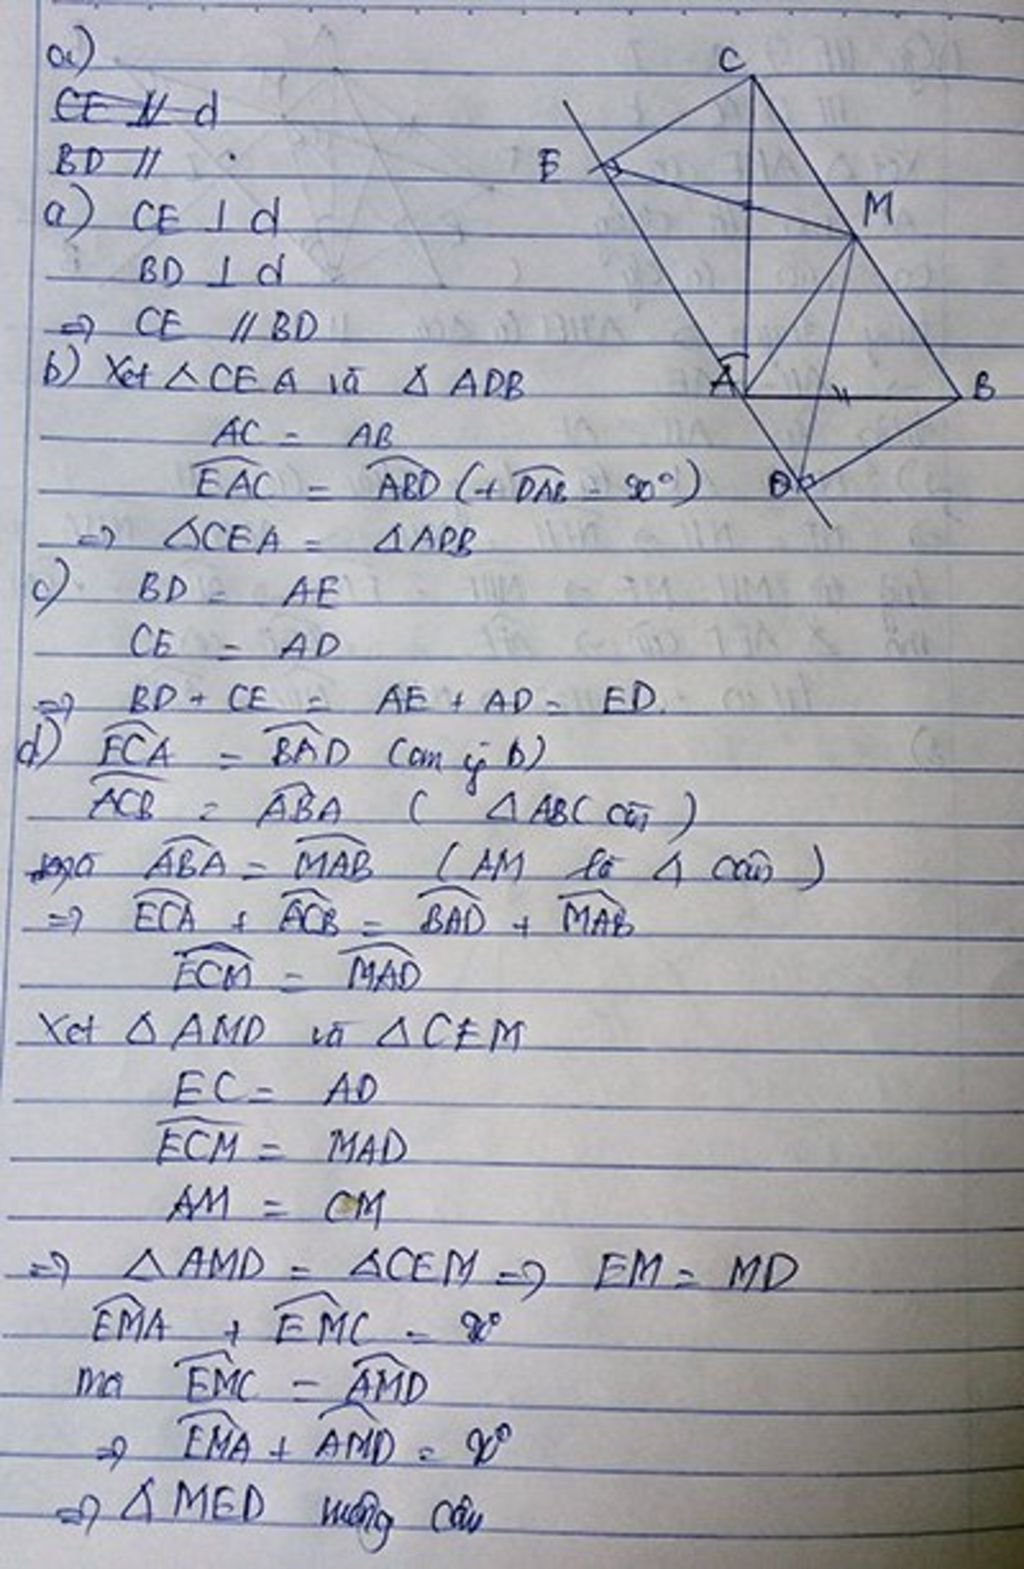 a)
CE // d
BD //
a) CE ⊥ d
BD ⊥ d
=> CE // BD
b) Xet △CEA và △ADB
AC = AB
EAC = ABD (+ DAB = 90°)
=> △CEA = △ADB
c) BD = AE
CE = AD
=> BD + CE = AE + AD = ED.
d) ECA = BAD (cm ý b)
ACB = ABA (△ABC cân)
mà ABA = MAB (AM là △ cân)
=> ECA + ACB = BAD + MAB
ECM = MAD
Xet △AMD và △CEM
EC = AD
ECM = MAD
AM = CM
=> △AMD = △CEM => EM = MD
EMA + EMC = 90°
ma EMC = AMD
=> EMA + AMD = 90°
=> △MED vuông cân
C
E
M
A
B
D